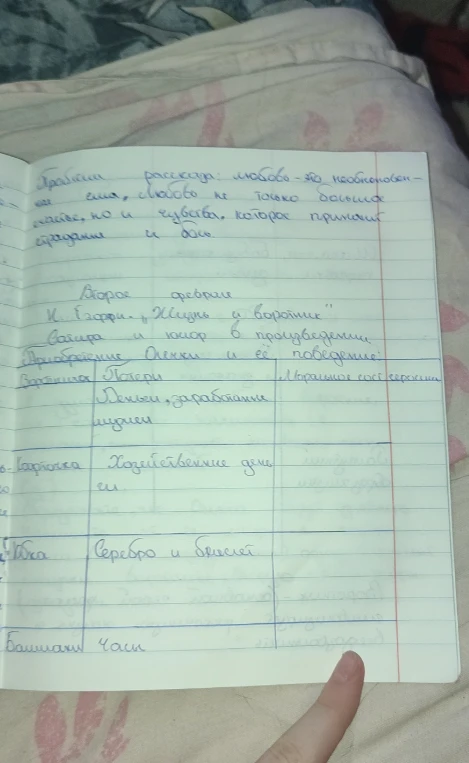 Проблема рассказа: любовь - это необыкновен-
ная сила. Любовь не только большое
счастье, но и чувства, которое приносит
страдание и боль.
Второе февраля
Н. Тэффи. "Жизнь и воротник"
Сатира и юмор в произведении.
Приобретение Оленки и её поведение:
Воротничок Потери Моральное сост героини
Деньги, заработанные
мужем
Кофточка Хозяйственные день
ги.
Юбка Серебро и браслет
Башмаки Часы